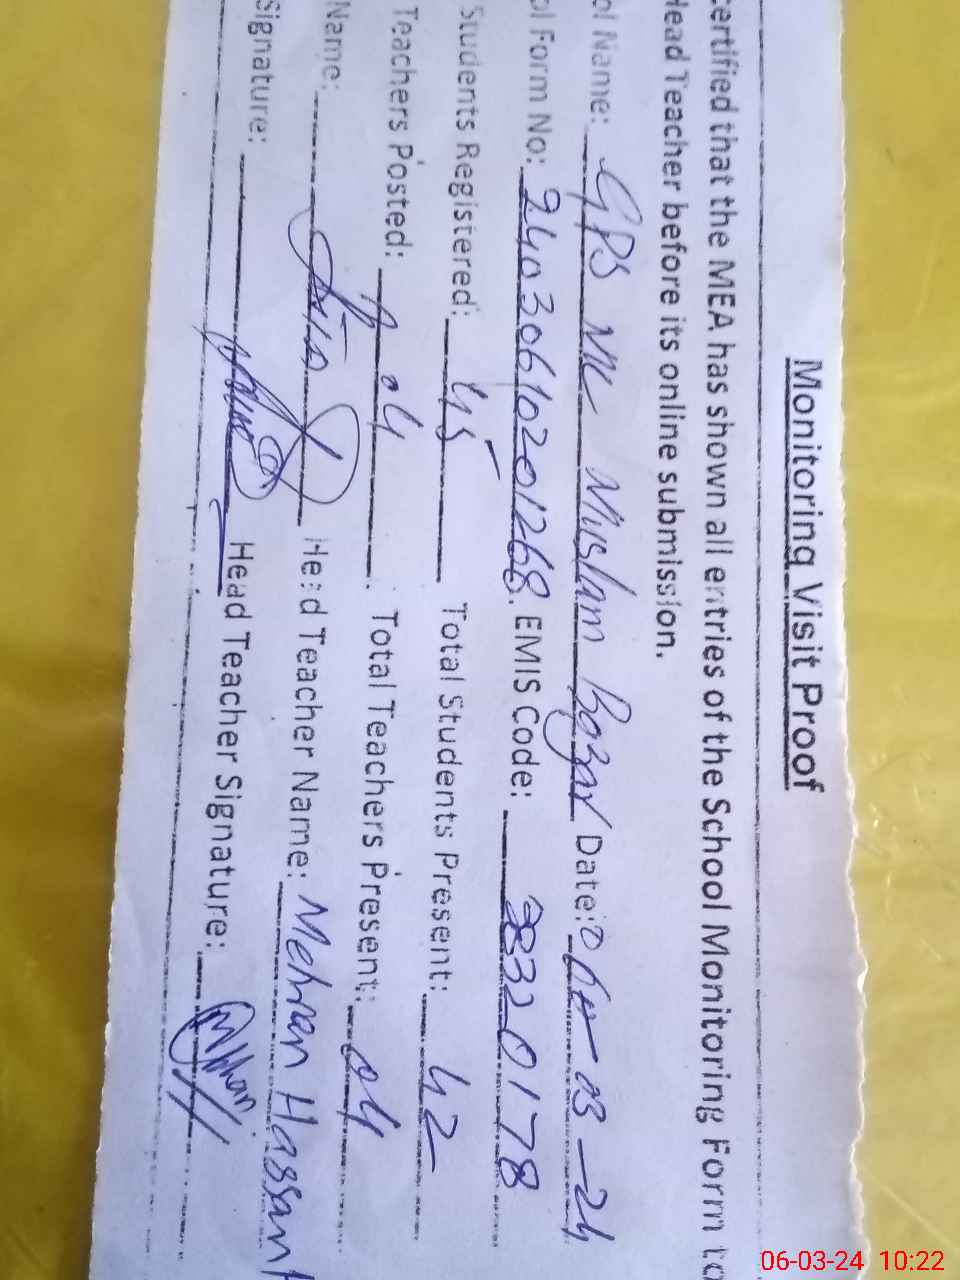 Monitoring Visit Proof
certified that the MEA has shown all entries of the School Monitoring Form to
Head Teacher before its online submission.
ol Name: GPS Muslam Bazar Date: 06-03-24
ol Form No: 2403061020201268. EMIS Code: 38320178
Students Registered: 45 Total Students Present: 42
Teachers Posted: 04 Total Teachers Present: 04
Name: Head Teacher Name: Mehran Hassan
Signature: Head Teacher Signature:
06-03-24 10:22